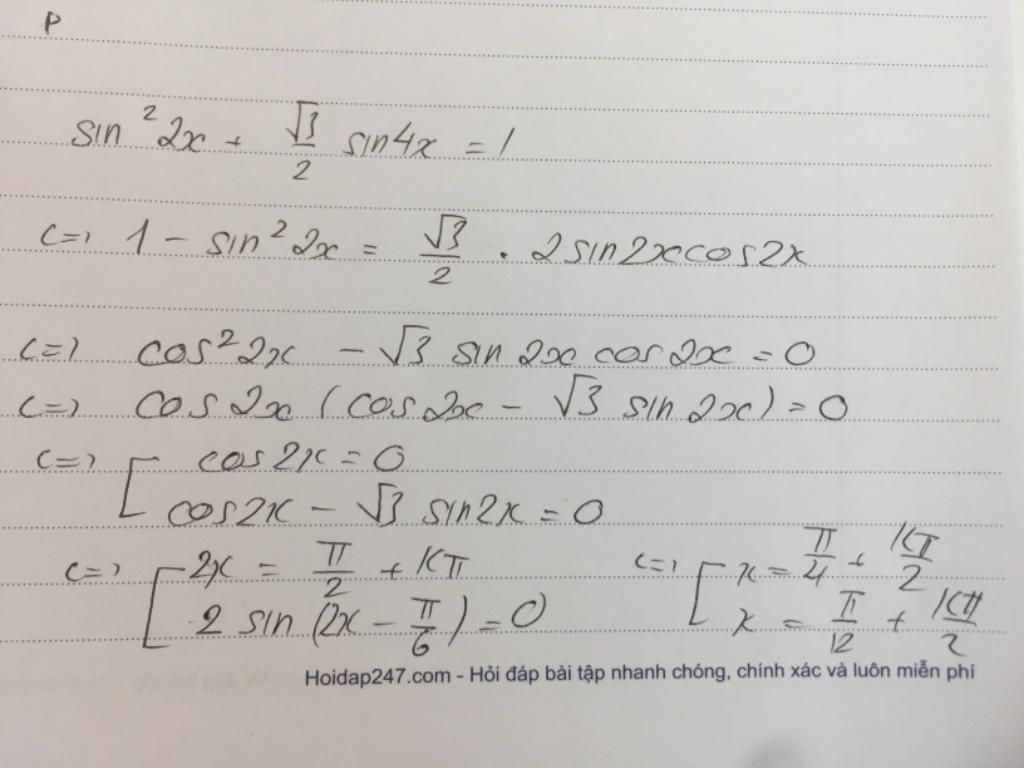 P
sin² 2x + √3/2 sin4x = 1
<=> 1 - sin² 2x = √3/2 . 2sin2xcos2x
<=> cos² 2x - √3 sin 2x cos 2x = 0
<=> cos 2x (cos 2x - √3 sin 2x) = 0
<=> [ cos2x = 0
cos2x - √3 sin2x = 0
<=> [ 2x = π/2 + kπ <=> [ x = π/4 + kπ/2
2 sin (2x - π/6) = 0 x = π/12 + kπ/2
Hoidap247.com - Hỏi đáp bài tập nhanh chóng, chính xác và luôn miễn phí